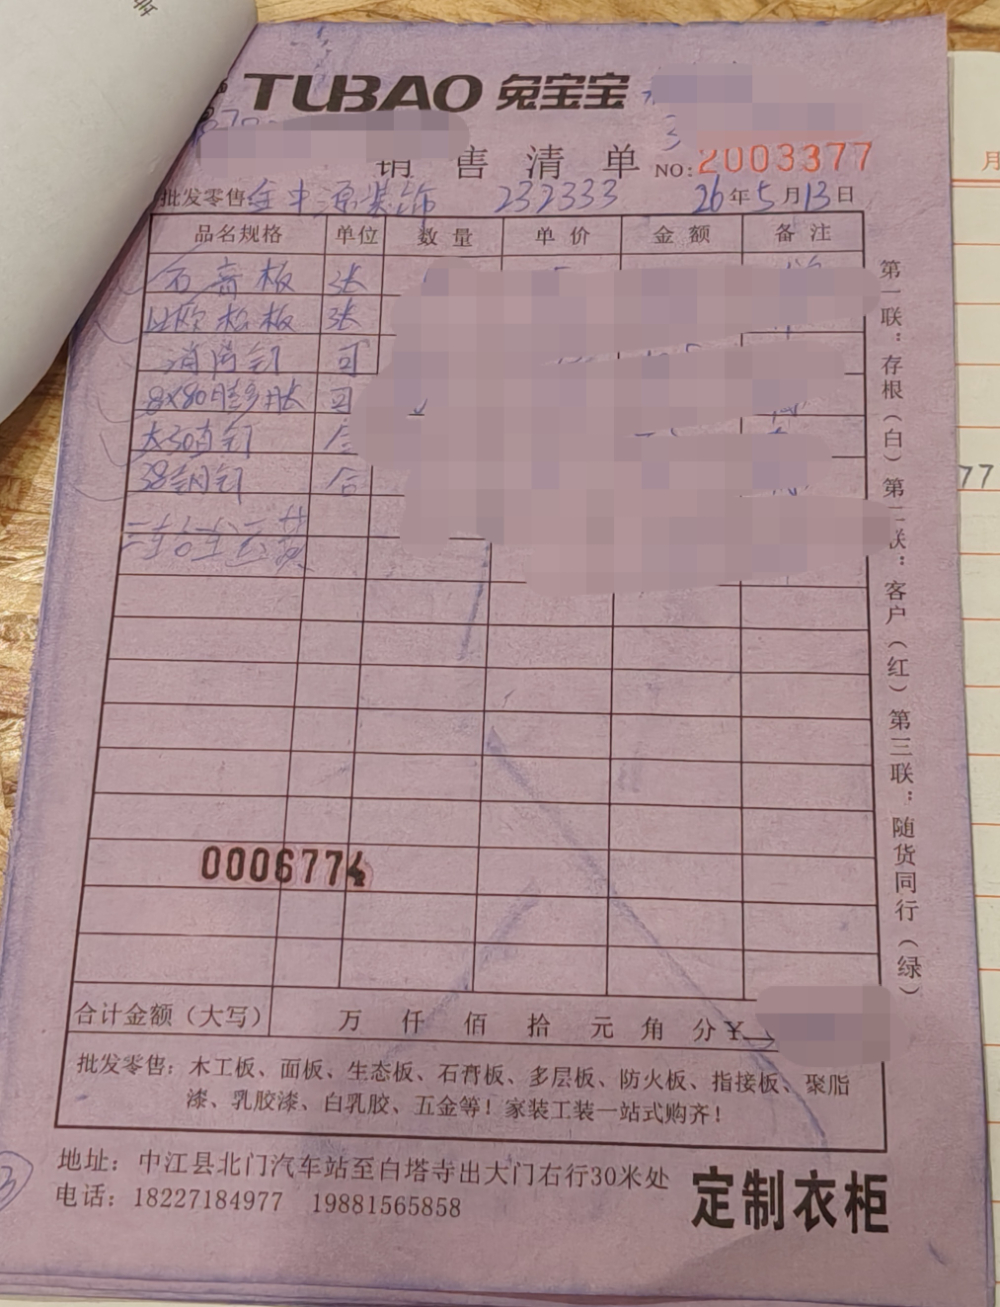 TUBAO 兔宝宝
销售清单 NO: 2003377
批发零售 金中源装饰 232333 26年5月13日
品名规格 单位 数量 单价 金额 备注
石膏板 张
欧松板 张
消声钉 可
8X80膨胀 可
大30直钉 合
38钢钉 合
三轮车运费
0006774
合计金额（大写） 万 仟 佰 拾 元 角 分 ¥
批发零售：木工板、面板、生态板、石膏板、多层板、防火板、指接板、聚脂
漆、乳胶漆、白乳胶、五金等！家装工装一站式购齐！
地址：中江县北门汽车站至白塔寺出大门右行30米处
电话：18227184977 19881565858
定制衣柜
第一联：存根（白）第二联：客户（红）第三联：随货同行（绿）
月
77